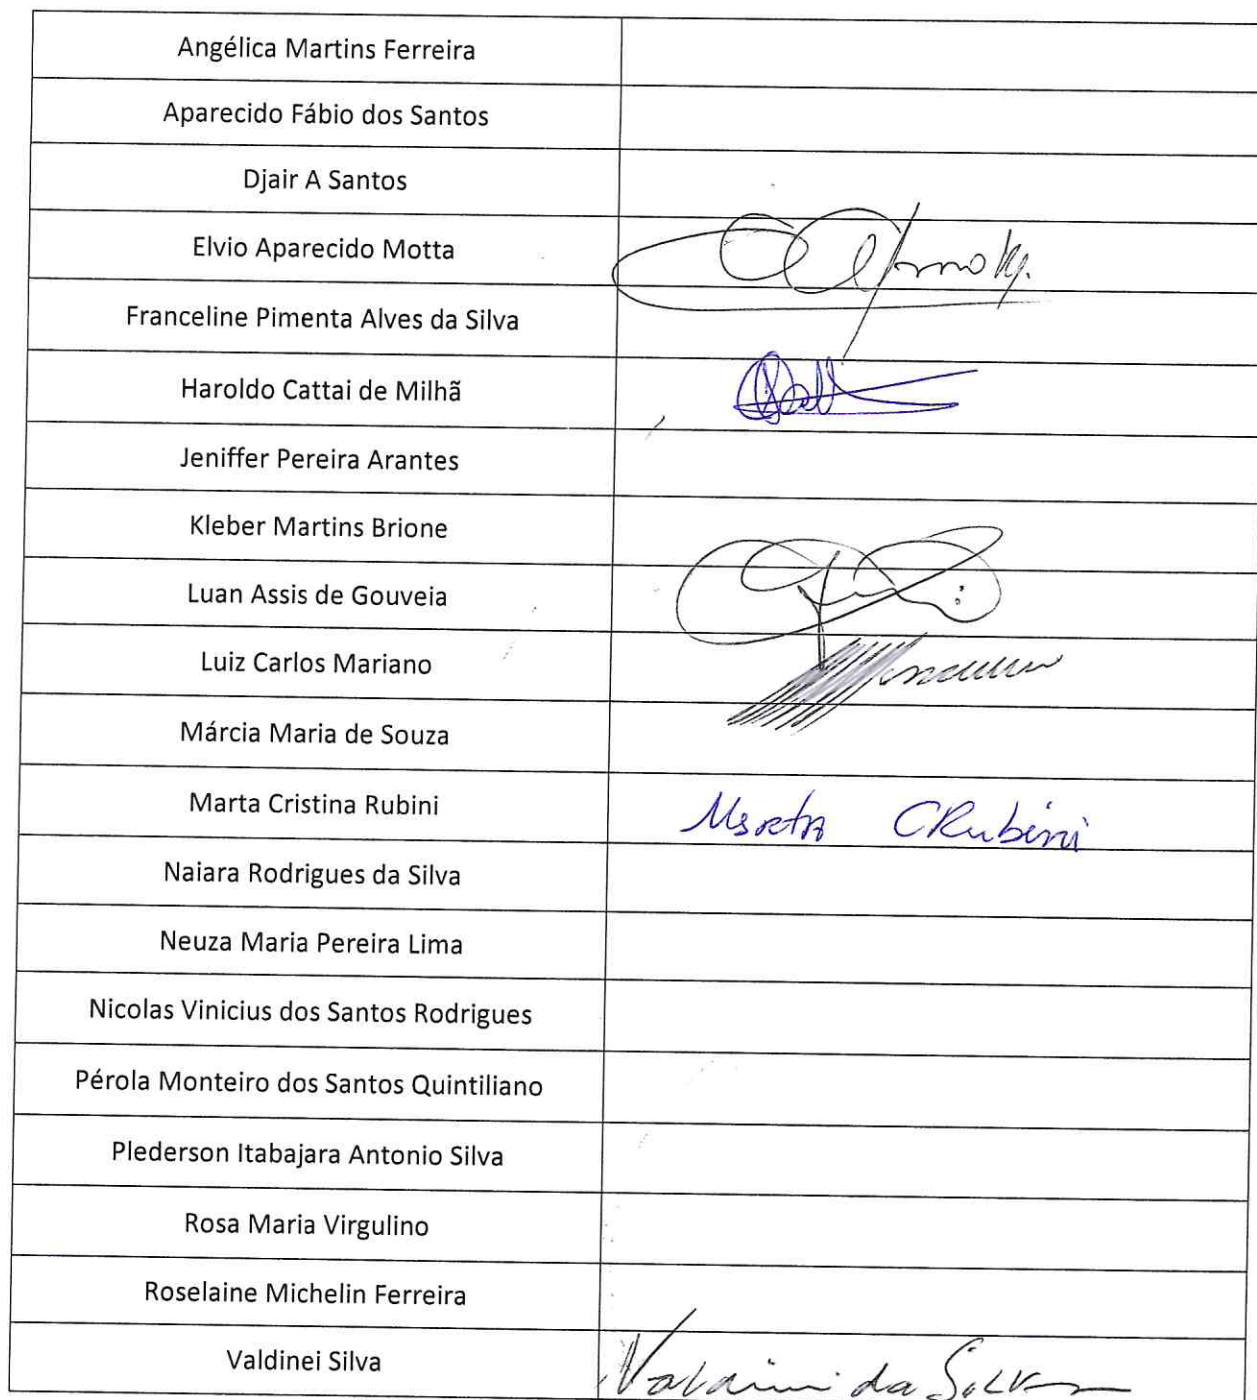 Angélica Martins Ferreira
Aparecido Fábio dos Santos
Djair A Santos
Elvio Aparecido Motta
Franceline Pimenta Alves da Silva
Haroldo Cattai de Milhã
Jeniffer Pereira Arantes
Kleber Martins Brione
Luan Assis de Gouveia
Luiz Carlos Mariano
Márcia Maria de Souza
Marta Cristina Rubini Marta CRubini
Naiara Rodrigues da Silva
Neuza Maria Pereira Lima
Nicolas Vinicius dos Santos Rodrigues
Pérola Monteiro dos Santos Quintiliano
Plederson Itabajara Antonio Silva
Rosa Maria Virgulino
Roselaine Michelin Ferreira
Valdinei Silva Valdinei da Silva